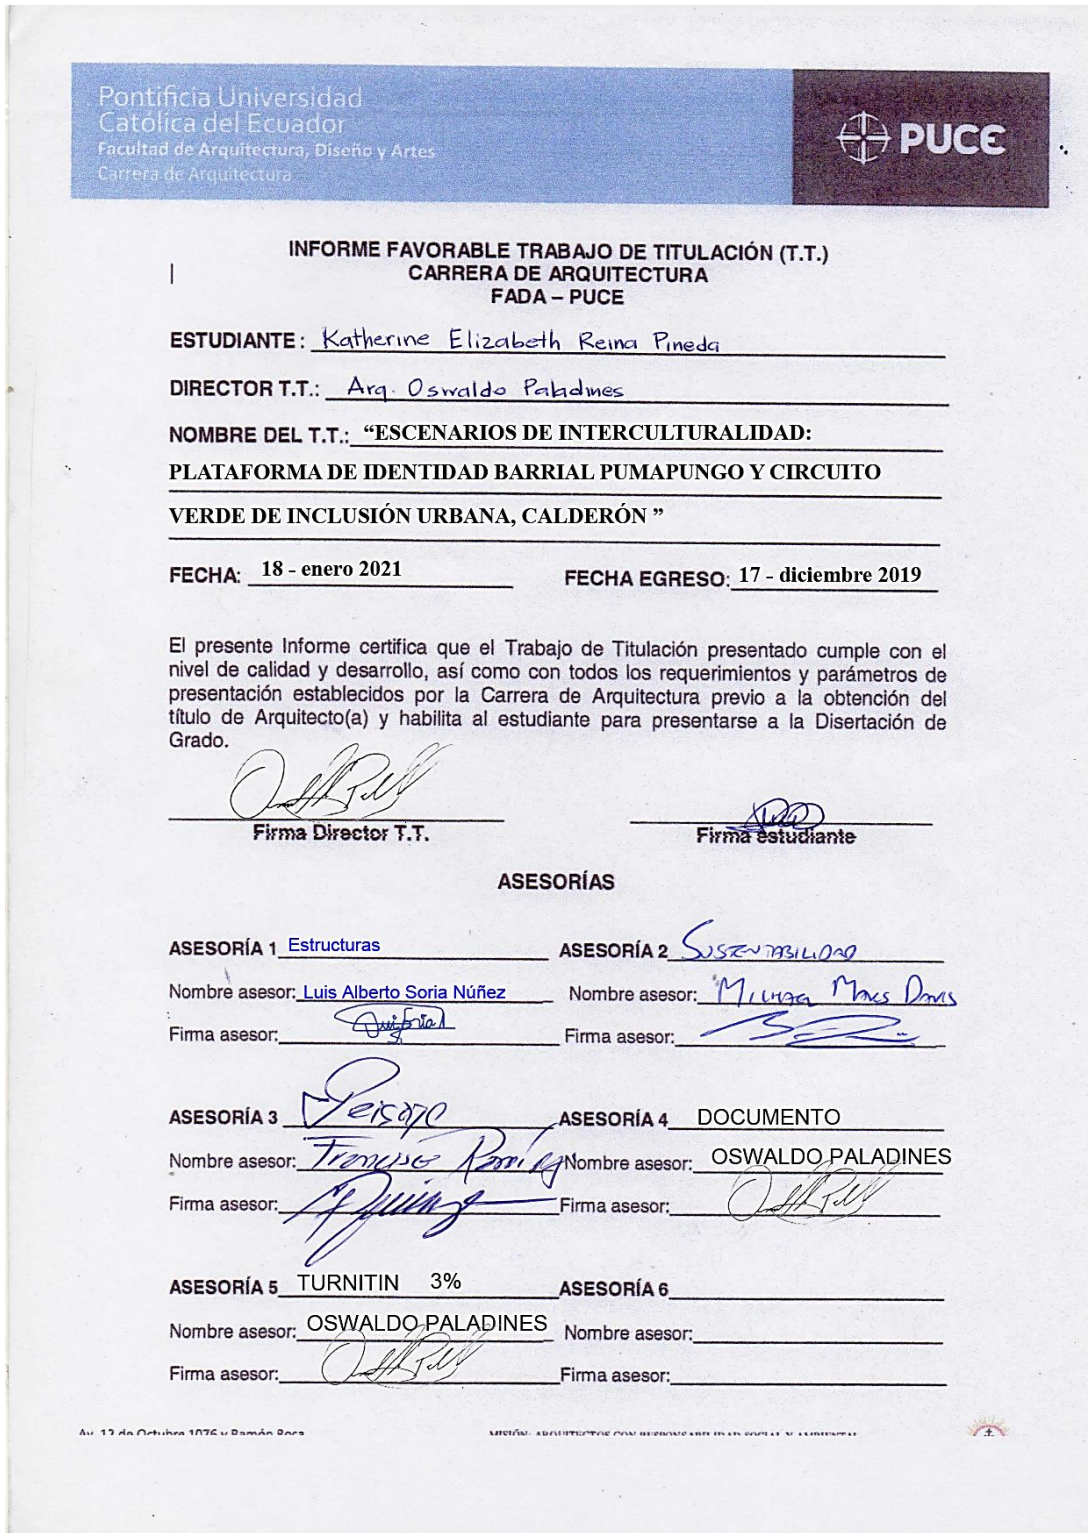 Pontificia Universidad
Católica del Ecuador
Facultad de Arquitectura, Diseño y Artes
Carrera de Arquitectura
PUCE
INFORME FAVORABLE TRABAJO DE TITULACIÓN (T.T.)
CARRERA DE ARQUITECTURA
FADA – PUCE
ESTUDIANTE : Katherine Elizabeth Reina Pineda
DIRECTOR T.T.: Arq. Oswaldo Paladines
NOMBRE DEL T.T.: “ESCENARIOS DE INTERCULTURALIDAD:
PLATAFORMA DE IDENTIDAD BARRIAL PUMAPUNGO Y CIRCUITO
VERDE DE INCLUSIÓN URBANA, CALDERÓN ”
FECHA: 18 - enero 2021 FECHA EGRESO: 17 - diciembre 2019
El presente Informe certifica que el Trabajo de Titulación presentado cumple con el
nivel de calidad y desarrollo, así como con todos los requerimientos y parámetros de
presentación establecidos por la Carrera de Arquitectura previo a la obtención del
título de Arquitecto(a) y habilita al estudiante para presentarse a la Disertación de
Grado.
Firma Director T.T. Firma estudiante
ASESORÍAS
ASESORÍA 1 Estructuras ASESORÍA 2 SUSTENTABILIDAD
Nombre asesor: Luis Alberto Soria Núñez Nombre asesor: MICHAEL MAKS DAVIS
Firma asesor: Firma asesor:
ASESORÍA 3 Peisaje ASESORÍA 4 DOCUMENTO
Nombre asesor: Francisco Ramírez Nombre asesor: OSWALDO PALADINES
Firma asesor: Firma asesor:
ASESORÍA 5 TURNITIN 3% ASESORÍA 6
Nombre asesor: OSWALDO PALADINES Nombre asesor:
Firma asesor: Firma asesor:
Av. 12 de Octubre 1076 y Ramón Roca MISIÓN: ARQUITECTOS CON RESPONSABILIDAD SOCIAL Y AMBIENTAL